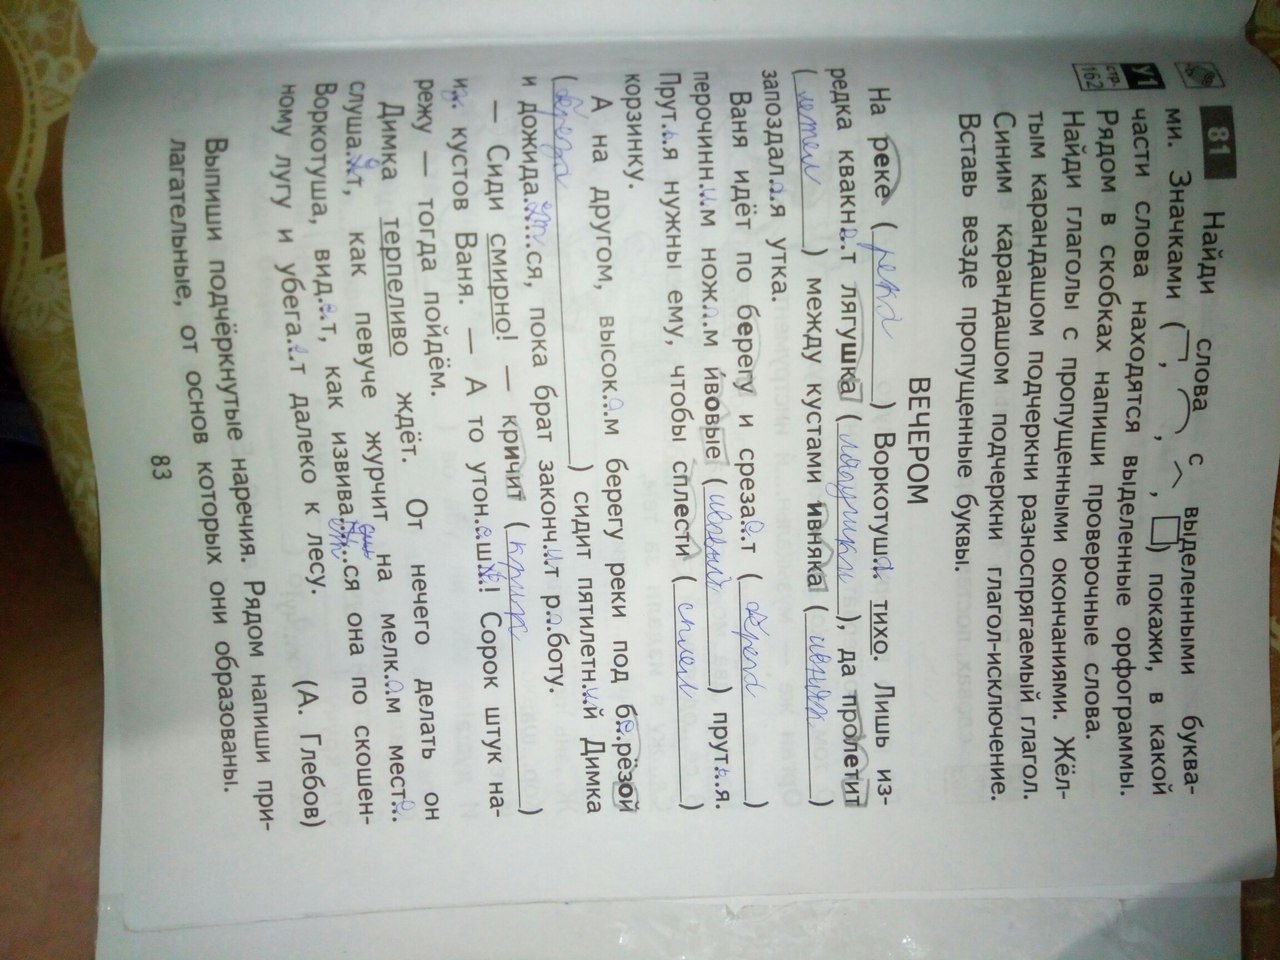 81 Найди слова с выделенными буква-
ми. Значками (¬, ⌒, ^, □) покажи, в какой
части слова находятся выделенные орфограммы.
У1
стр.
162
Рядом в скобках напиши проверочные слова.
Найди глаголы с пропущенными окончаниями. Жёл-
тым карандашом подчеркни разноспрягаемый глагол.
Синим карандашом подчеркни глагол-исключение.
Вставь везде пропущенные буквы.
ВЕЧЕРОМ
На реке (река) Воркотуш.а. тихо. Лишь из-
редка квакн.е.т лягушка (лягушки), да пролетит
(летел) между кустами ивняка (ивняк)
запоздал.а.я утка.
Ваня идёт по берегу и среза.е.т (берега)
перочинн.ы.м нож.о.м и́вовые (ивовый) прут.ь.я.
Прут.ь.я нужны ему, чтобы сплести (сплел)
корзинку.
А на другом, высок.о.м берегу реки под б.е.рёзой
(берега) сидит пятилетн.и.й Димка
и дожида.ет.ся, пока брат законч.и.т р.а.боту.
— Сиди смирно! — кричит (крик)
из. кустов Ваня. — А то утон.е.ш.ь.! Сорок штук на-
режу — тогда пойдём.
Димка терпеливо ждёт. От нечего делать он
слуша.е.т, как певуче журчит на мелк.о.м мест.е.
Воркотуша, вид.и.т, как извива.ет.ся она по скошен-
ному лугу и убега.е.т далеко к лесу. (А. Глебов)
Выпиши подчёркнутые наречия. Рядом напиши при-
лагательные, от основ которых они образованы.
83